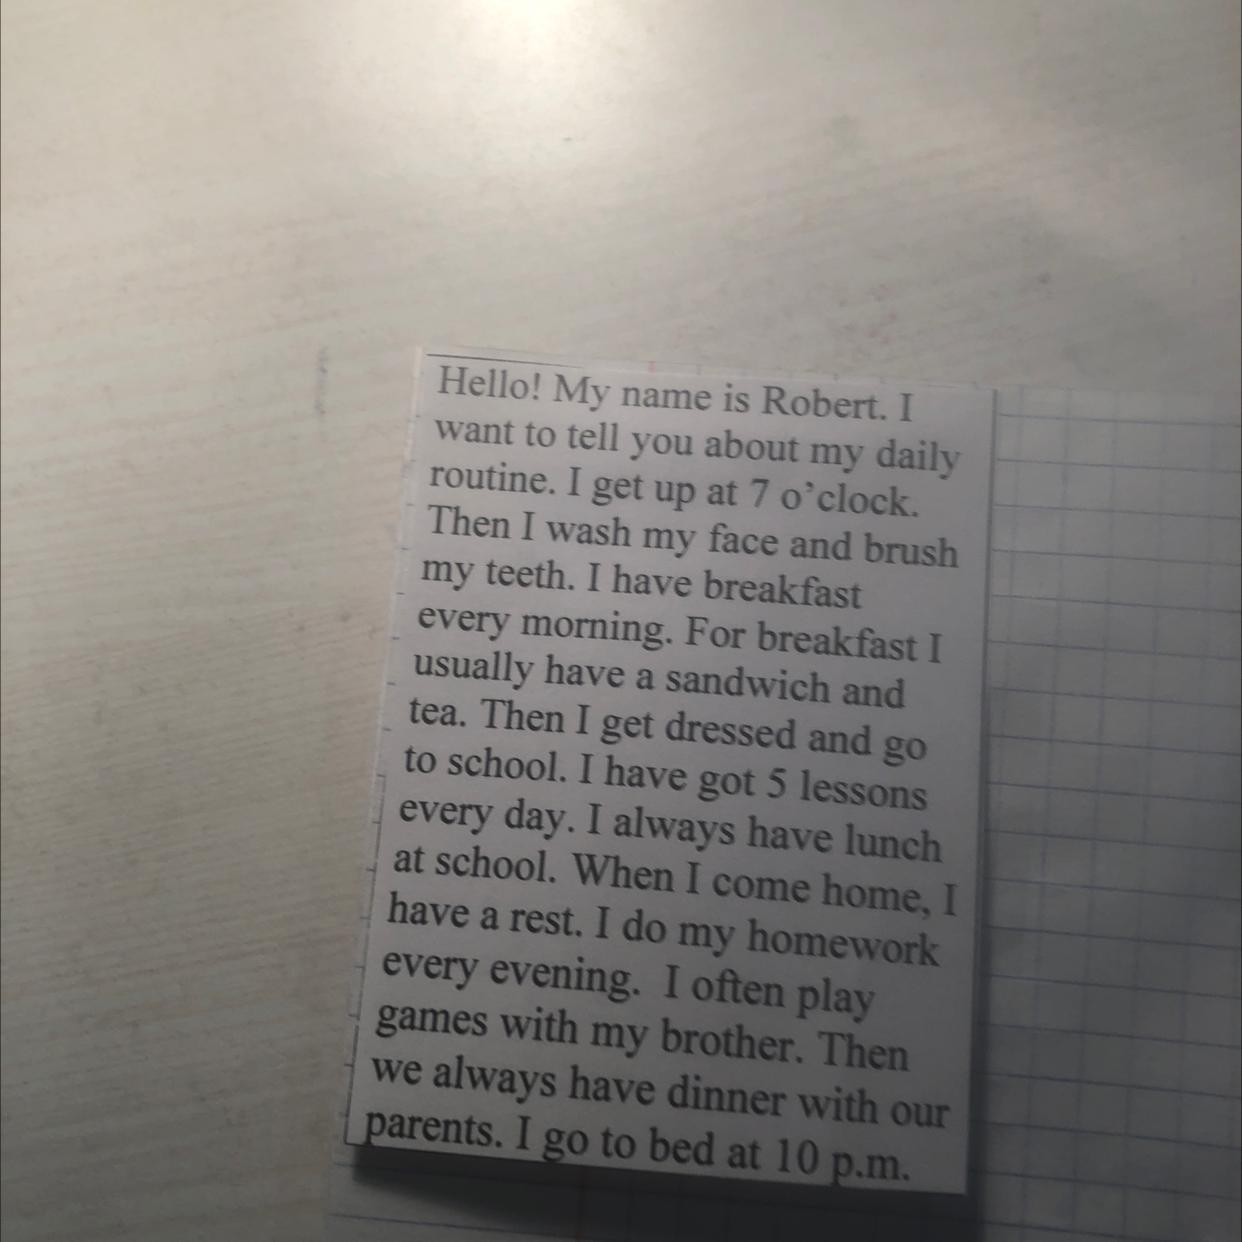 Hello! My name is Robert. I
want to tell you about my daily
routine. I get up at 7 o’clock.
Then I wash my face and brush
my teeth. I have breakfast
every morning. For breakfast I
usually have a sandwich and
tea. Then I get dressed and go
to school. I have got 5 lessons
every day. I always have lunch
at school. When I come home, I
have a rest. I do my homework
every evening. I often play
games with my brother. Then
we always have dinner with our
parents. I go to bed at 10 p.m.